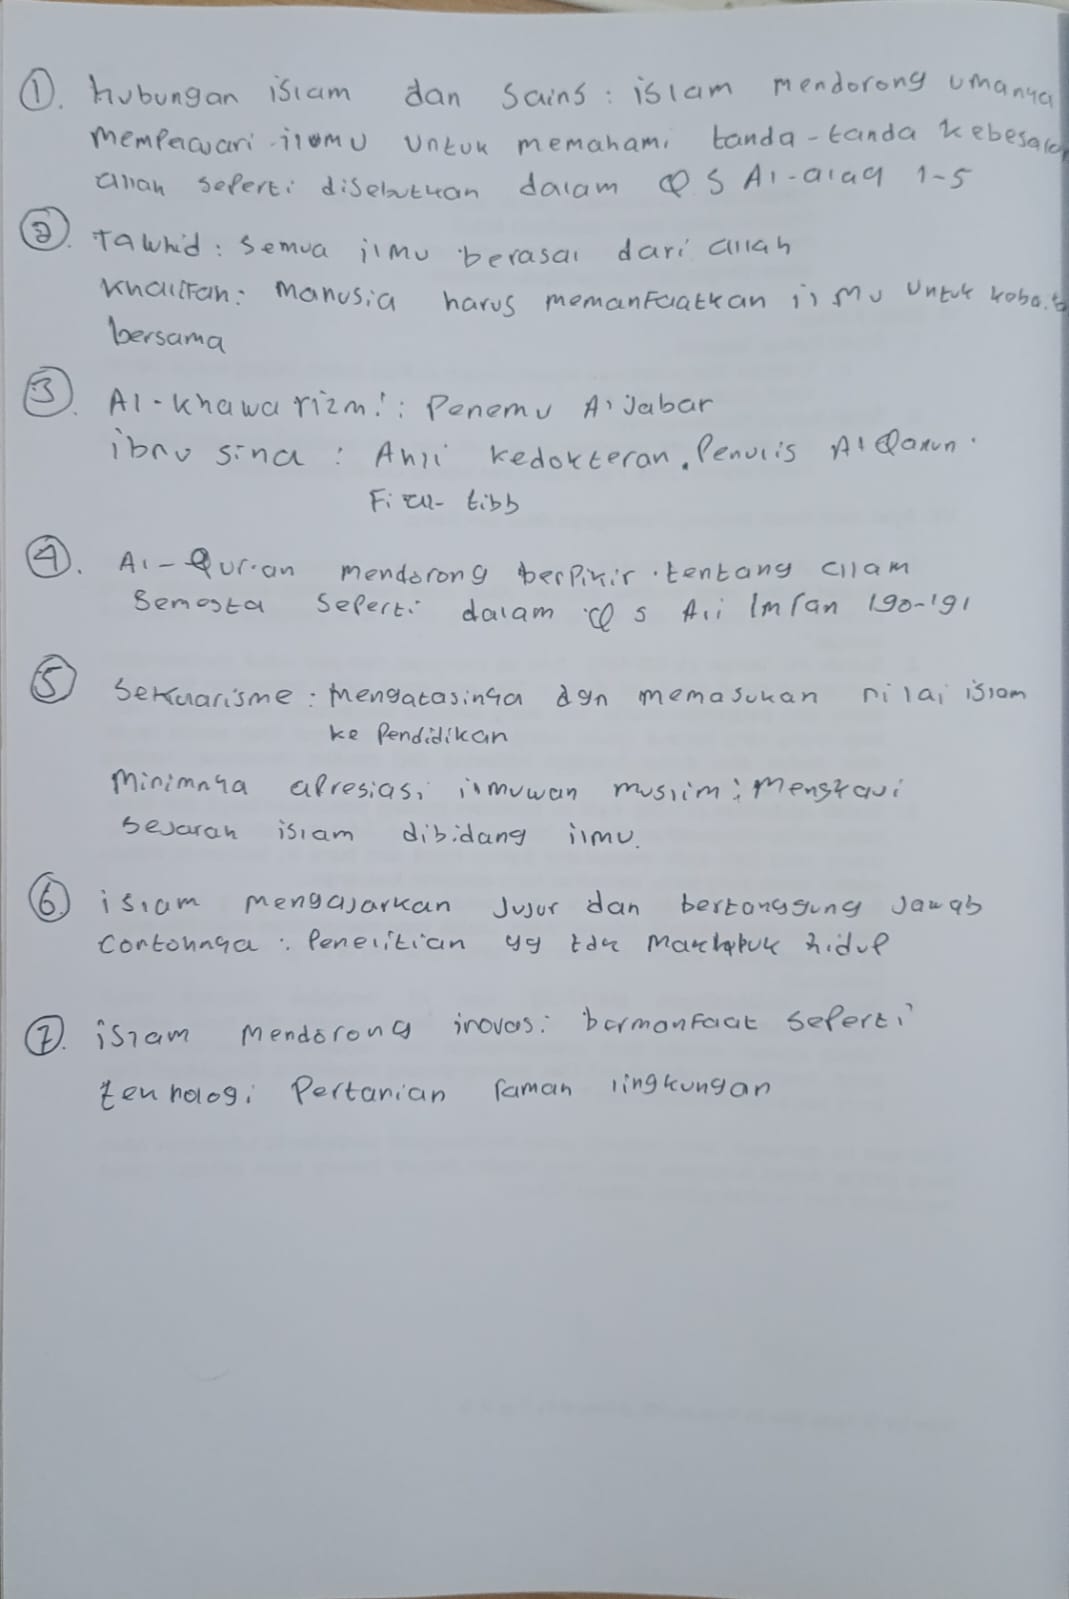 1. hubungan islam dan sains : islam mendorong umanya
mempelajari ilmu untuk memahami tanda-tanda kebesaran
allah seperti disebutkan dalam Q S Al-alaq 1-5
2. Tawhid : semua ilmu berasal dari allah
Khalifah : manusia harus memanfaatkan ilmu untuk
bersama
3. Al-khawarizmi : Penemu Aljabar
ibnu sina : Ahli kedokteran. Penulis Al Qanun
Fi tibb
4. Al-Qur-an mendorong berpikir tentang alam
semesta seperti dalam Q S Ali Imran 190-191
5. Sekuarisme : mengatasinya dgn memasukan nilai islam
ke Pendidikan
Minimnya apresiasi ilmuwan muslim : mengkaji
sejarah islam dibidang ilmu.
6. islam mengajarkan Jujur dan bertanggung Jawab
Contohnya : Penelitian yg tdk hidup
7. islam mendorong inovasi bermanfaat seperti
teknologi Pertanian raman lingkungan